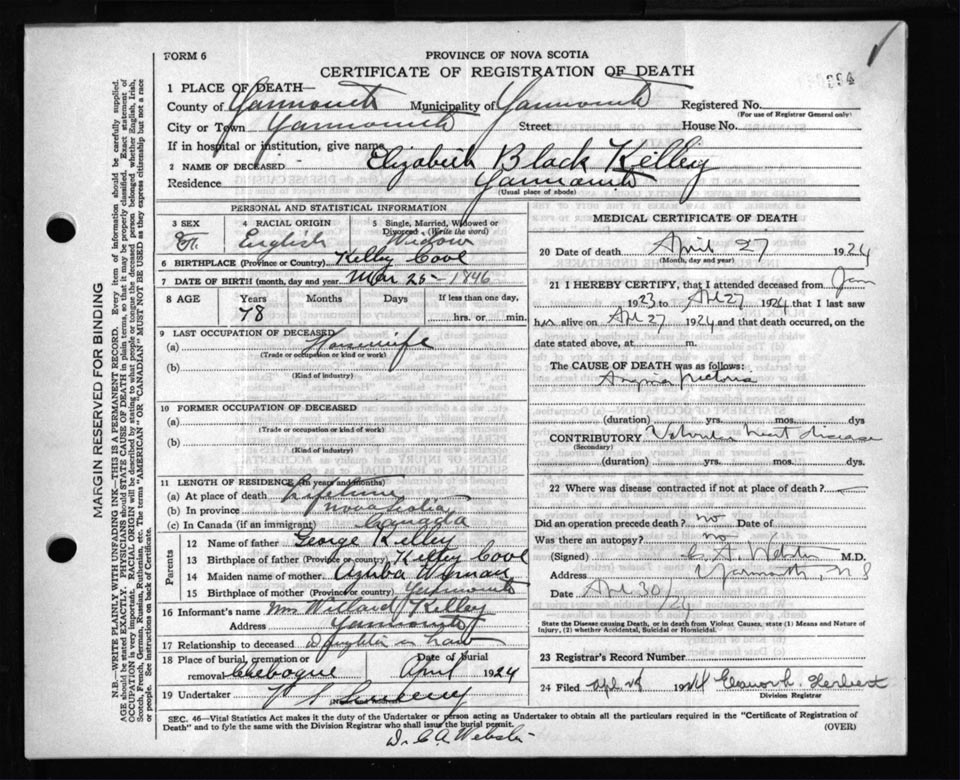 FORM 6
PROVINCE OF NOVA SCOTIA
CERTIFICATE OF REGISTRATION OF DEATH
1 PLACE OF DEATH—
County of Yarmouth Municipality of Yarmouth Registered No.
(For use of Registrar General only)
City or Town Yarmouth Street House No.
If in hospital or institution, give name
2 NAME OF DECEASED Elizabeth Black Kelley
Residence Yarmouth
(Usual place of abode)
PERSONAL AND STATISTICAL INFORMATION
3 SEX 4 RACIAL ORIGIN 5 Single, Married, Widowed or Divorced (Write the word)
English Widow
6 BIRTHPLACE (Province or Country) Kelley Cove
7 DATE OF BIRTH (month, day and year) Mar 25 - 1846
8 AGE Years Months Days If less than one day,
78 hrs. or min.
9 LAST OCCUPATION OF DECEASED
(a) Housewife
(Trade or occupation or kind of work)
(b)
(Kind of industry)
10 FORMER OCCUPATION OF DECEASED
(a)
(Trade or occupation or kind of work)
(b)
(Kind of industry)
11 LENGTH OF RESIDENCE (in years and months)
(a) At place of death Lifetime
(b) In province Nova Scotia
(c) In Canada (if an immigrant) Canada
Parents
12 Name of father George Kelley
13 Birthplace of father (Province or country) Kelley Cove
14 Maiden name of mother
15 Birthplace of mother (Province or country) Yarmouth
16 Informant's name Mrs Willard Kelley
Address Yarmouth
17 Relationship to deceased Daughter in Law
18 Place of burial, cremation or removal Chebogue Date of Burial April 1924
19 Undertaker V S Sweeny
(Name and Address)
MEDICAL CERTIFICATE OF DEATH
20 Date of death April 27 1924
(Month, day and year)
21 I HEREBY CERTIFY, that I attended deceased from Jan
1923 to Apl 27 1924 that I last saw
her alive on Apl 27 1924 and that death occurred, on the
date stated above, at m.
The CAUSE OF DEATH was as follows:
Angina pectoris
(duration) yrs. mos. dys
CONTRIBUTORY Valvular heart disease
(Secondary)
(duration) yrs. mos. dys.
22 Where was disease contracted if not at place of death?
Did an operation precede death? no Date of
Was there an autopsy? no
(Signed) C. A. Webster M.D.
Address Yarmouth, N S
Date Apl 30/24
State the Disease causing Death, or in death from Violent Causes, state (1) Means and Nature of
Injury, (2) whether Accidental, Suicidal or Homicidal.
23 Registrar's Record Number
24 Filed Apl 29 1924 Herbert
Division Registrar
SEC. 46—Vital Statistics Act makes it the duty of the Undertaker or person acting as Undertaker to obtain all the particulars required in the "Certificate of Registration of
Death" and to fyle the same with the Division Registrar who shall issue the burial permit. (OVER)
Dr C A Webster
MARGIN RESERVED FOR BINDING
N.B.—WRITE PLAINLY WITH UNFADING INK—THIS IS A PERMANENT RECORD. Every item of information should be carefully supplied.
AGE should be stated EXACTLY. PHYSICIANS should STATE CAUSE OF DEATH in plain terms, so that it may be properly classified. Exact statement of
OCCUPATION is very important. RACIAL ORIGIN will be described by stating to what people or tongue the deceased person belonged whether English, Irish,
Scotch, French, German, Russian, Ruthenian, etc. The terms "AMERICAN" OR "CANADIAN" MUST NOT BE USED as they express citizenship but not a race
or people. See instructions on back of Certificate.